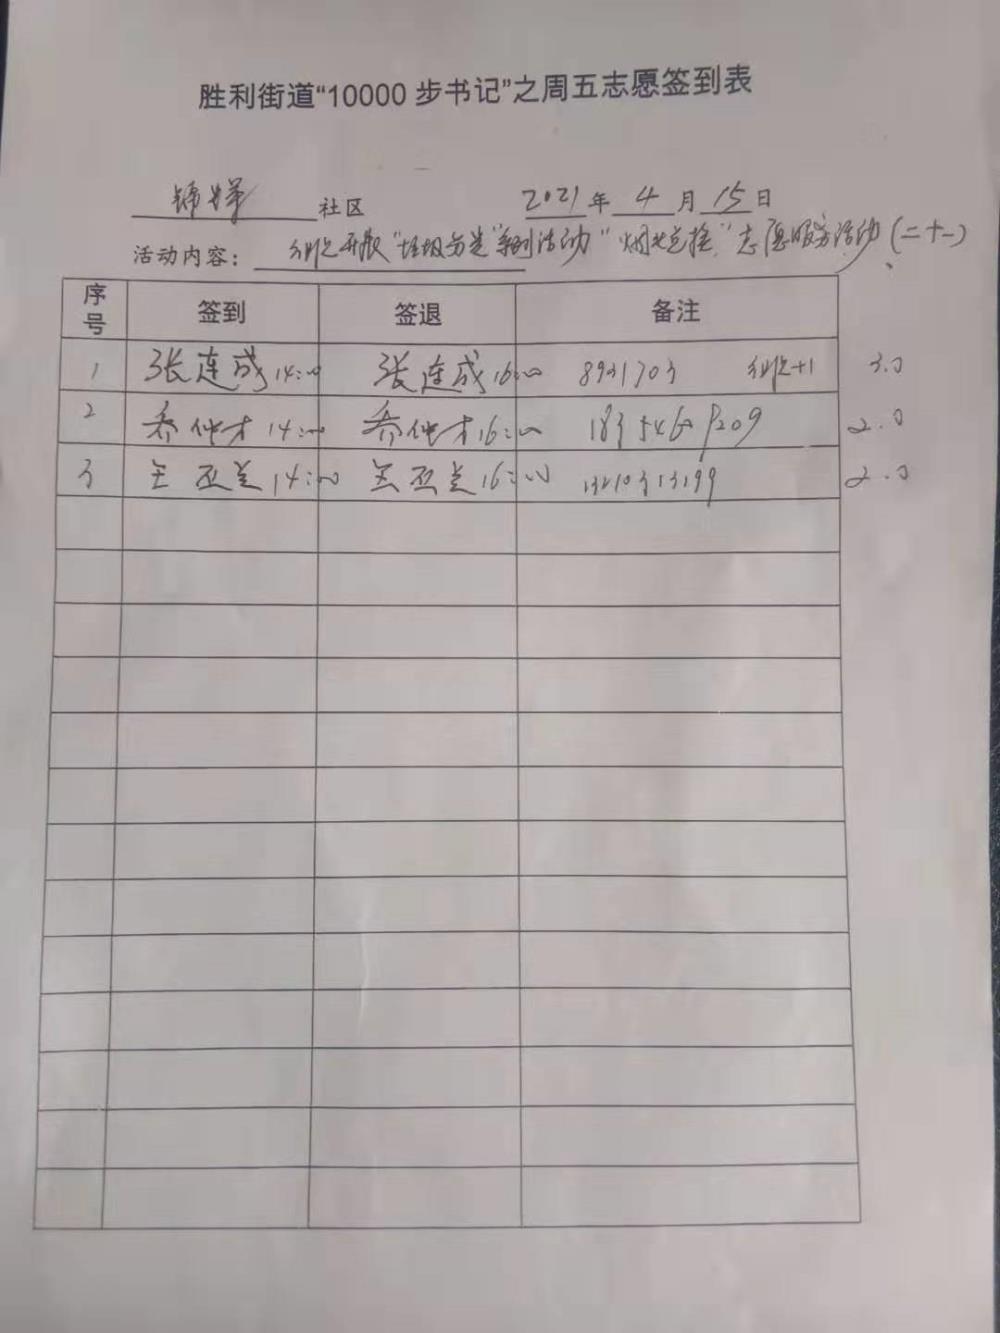 胜利街道“10000 步书记”之周五志愿签到表
锦华 社区 2021 年 4 月 15 日
活动内容： 组织开展“垃圾分类”系列活动“烟头兑换”志愿服务活动(二十一)
序号 签到 签退 备注
1 张连成 14:00 张连成 16:00 8931703 组织+1 3.0
2 乔仲才 14:00 乔仲才 16:00 2.0
3 王亚兰 14:00 王亚兰 16:00 13210313199 2.0